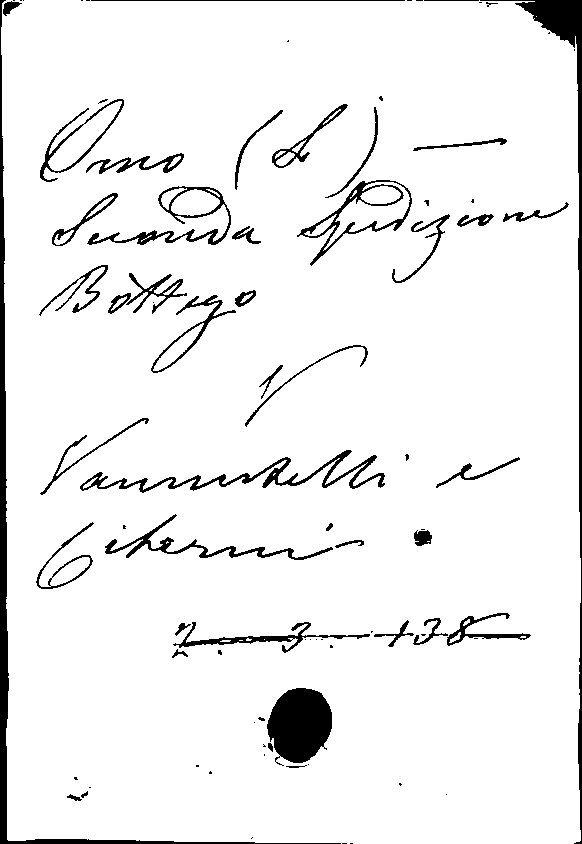 Omo (L') —
Seconda Spedizione
Bòttego
V
Vannutelli e
Citerni
2. 3. 138